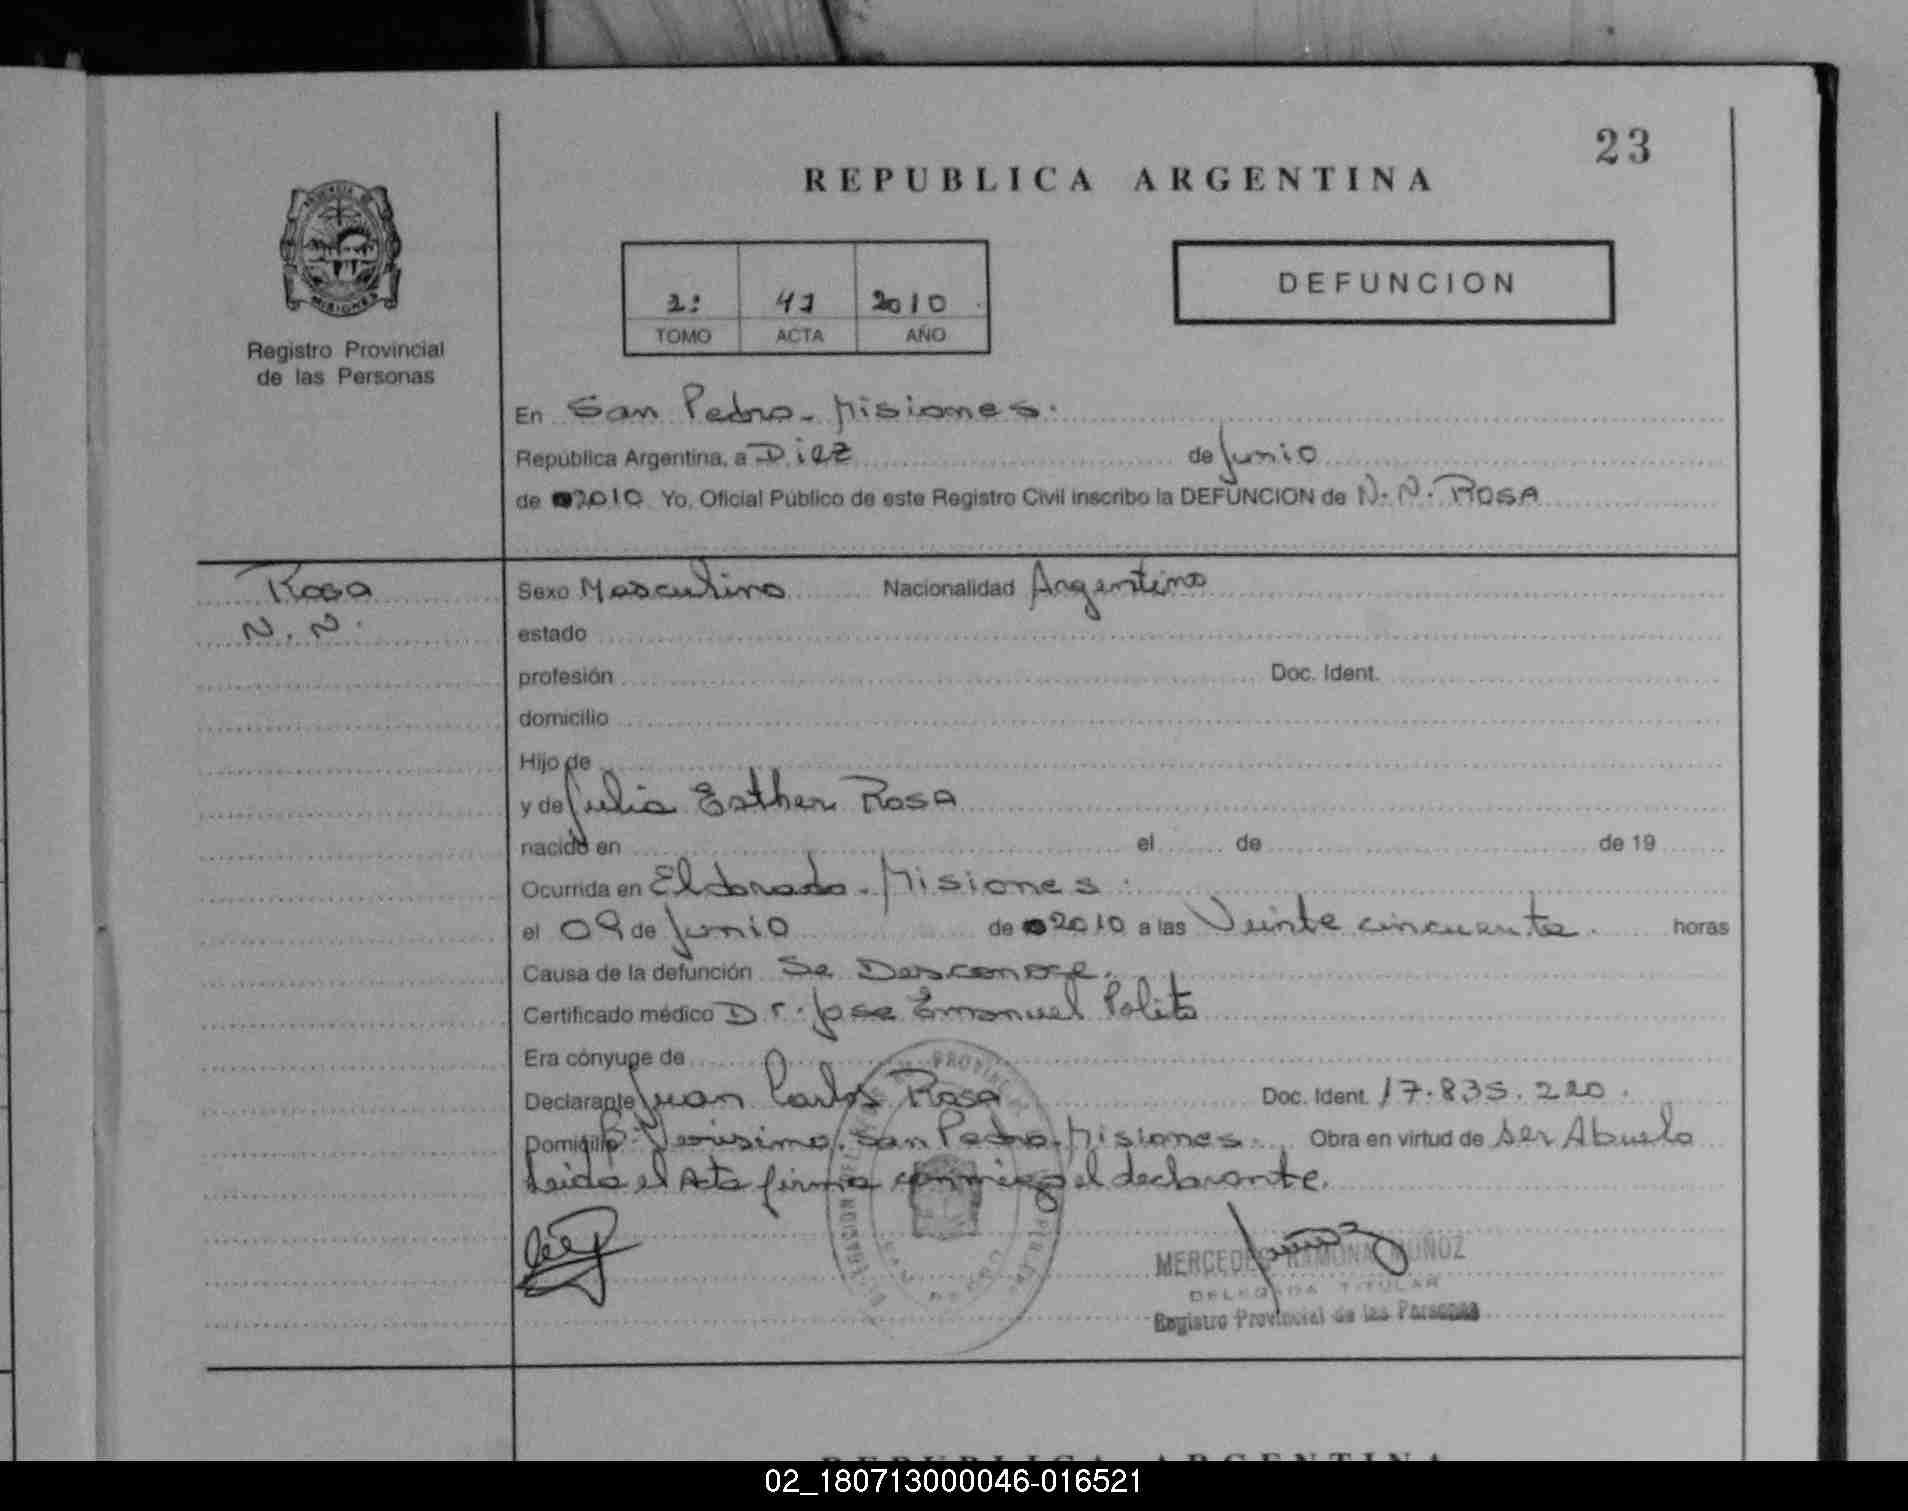 23
REPUBLICA ARGENTINA
MISIONES
Registro Provincial
de las Personas
2: 41 2010
TOMO ACTA AÑO
DEFUNCION
En San Pedro - Misiones.
República Argentina, a Diez de Junio
de 2010 Yo, Oficial Público de este Registro Civil inscribo la DEFUNCION de N. N. ROSA
Rosa
N. N.
Sexo Masculino Nacionalidad Argentino
estado
profesión Doc. Ident.
domicilio
Hijo de
y de Julia Esther Rosa
nacido en el de de 19
Ocurrida en Eldorado - Misiones.
el 09 de Junio de 2010 a las Veinte cincuenta. horas
Causa de la defunción Se Desconoce.
Certificado médico Dr. Jose Emanuel Polito
Era cónyuge de
Declarante Juan Carlos Rosa Doc. Ident. 17.835.220.
Domicilio San Pedro - Misiones. Obra en virtud de ser Abuelo
Leida el Acta firma conmigo el declarante.
MERCEDES RAMONA MUÑOZ
DELEGADA TITULAR
Registro Provincial de las Personas
REPUBLICA ARGENTINA
02_180713000046-016521